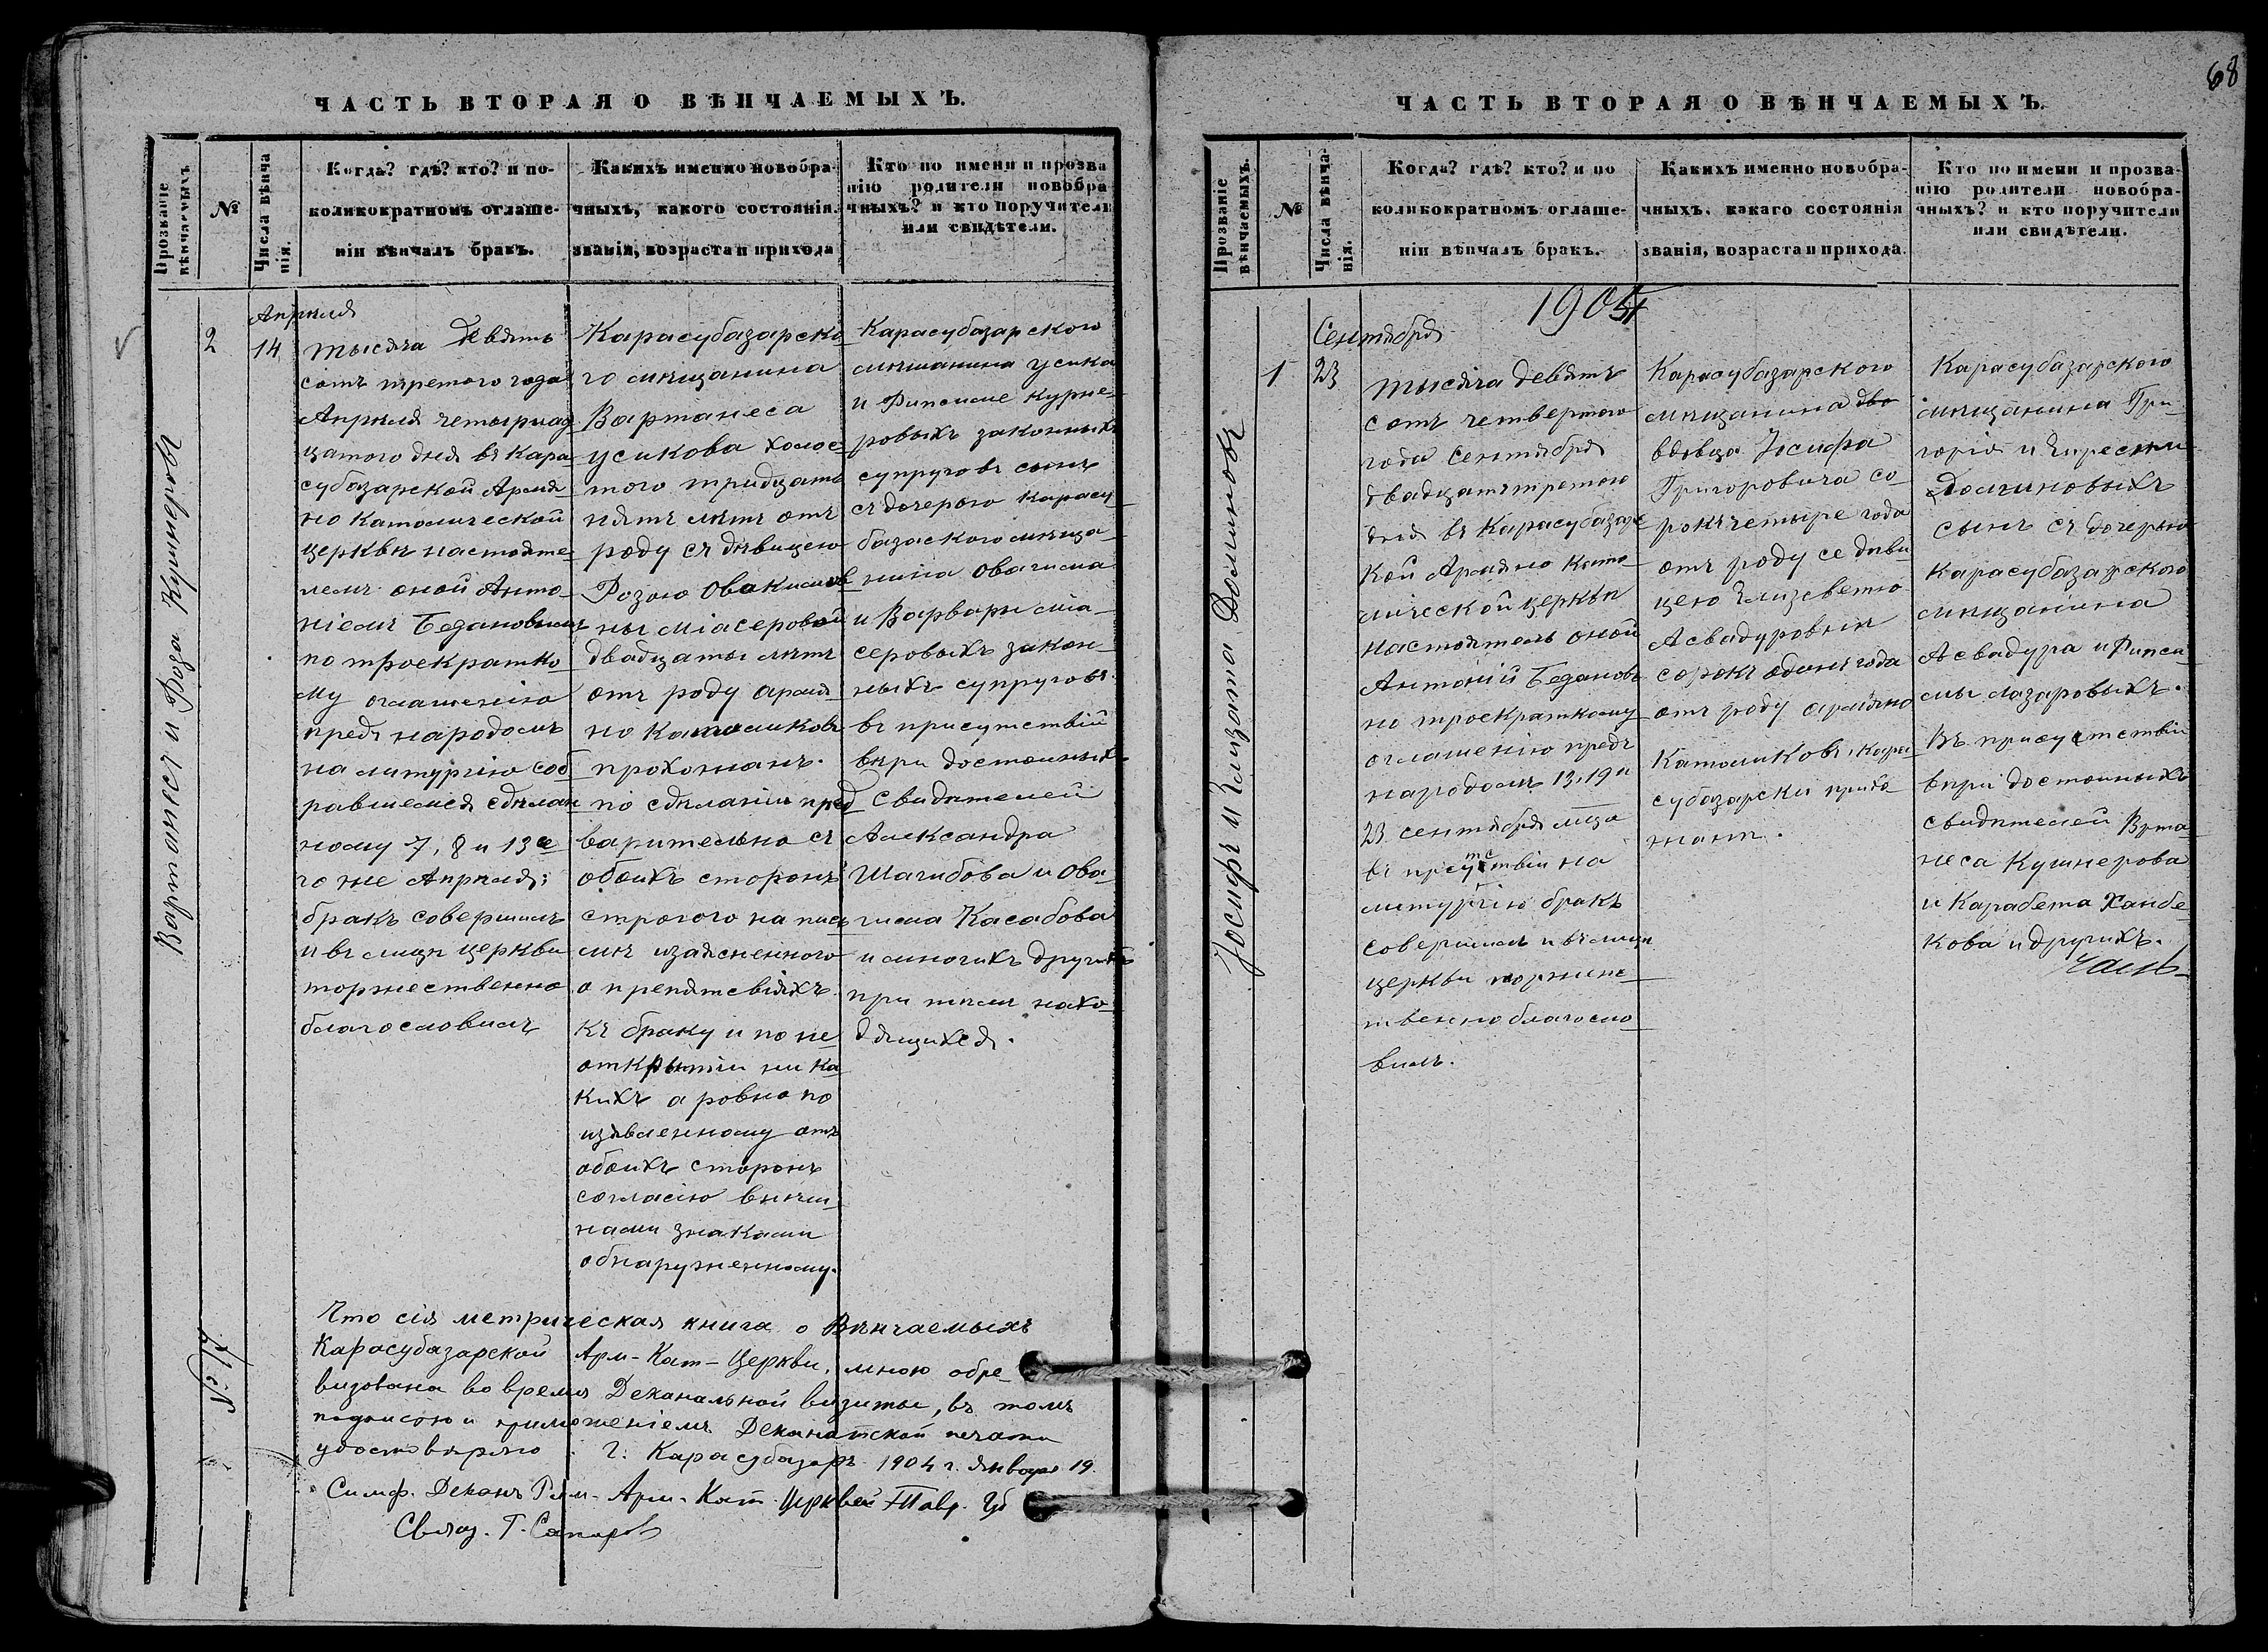 68
ЧАСТЬ ВТОРАЯ О ВѢНЧАЕМЫХЪ.
Прозваніе вѣнчаемыхъ
№
Числа вѣнчанія.
Когда? гдѣ? кто? и по-
коликократномъ оглаше-
ніи вѣнчалъ бракъ.
Какихъ именно новобра-
чныхъ, какого состоянія
званія, возраста и прихода
Кто по имени и прозва
нію родители новобра
чныхъ? и кто поручители
или свидѣтели.
Вартанесъ и Роза
2
Апреля
14
Тысяча девять
сотъ третого года
Апреля четырнад
цатого дня въ Кара
субазарской Армя
но Католической
церкви настояте
лемъ оной Анто
ніемъ Бедановымъ
по троекратно
му оглашенію
предъ народомъ
на литургію соб
равшемся сдѣлан
ному 7, 8 и 13 се
го же Апреля;
бракъ совершилъ
и въ лице церкви
торжественно
благословилъ
Карасубазарско
го мѣщанина
Вартанеса
Усикова холос
того тридцать
пять лѣтъ отъ
роду съ дѣвицею
Розою Овакимов
ны Міасеровой
двадцаты лѣтъ
отъ роду армя
но Католиковъ
прохожанъ.
по сдѣланіи пред
варительно съ
обоихъ сторонъ
строгого на пись
мѣ изясненного
о препятсвіяхъ
къ браку и по не
открытіи ни ка
кихъ а ровно по
изявленному отъ
обоихъ сторонъ
согласію внѣш
нами знаками
обнаруженному.
Карасубазарского
мѣшанина Усика
и Рипсиме Курне-
ровыхъ законныхъ
супруговъ сынъ
съ дочерью Карасу-
базаского мѣща-
нина Овагима
и Варвары Міа-
серовыхъ закон-
ныхъ супруговъ.
въ присутствіи
вѣри достойныхъ
Свидѣтелей
Александра
Шагибова и Ова-
гима Касабова
и многихъ другихъ
при томъ нахо-
дящихся.
Что сія метрическая книга о Вѣнчаемыхъ
Карасубазарской Арм-Кат-Церкви, мною обре-
визована во время Деканальной визиты, въ томъ
подписою и приложеніемъ Деканатской печати
удостовѣряю. Г. Карасубазаръ 1904 г. Января 19.
Симф. Деканъ Рим-Арм-Кат Церквей Тавр. Губ
Свящ. Г. Сапаров
ЧАСТЬ ВТОРАЯ О ВѢНЧАЕМЫХЪ.
Прозваніе вѣнчаемыхъ.
№
Числа вѣнча-
нія.
Когда? гдѣ? кто? и по
коликократномъ оглаше-
ніи вѣнчалъ бракъ.
Какихъ именно новобра-
чныхъ, какаго состоянія
званія, возраста и прихода.
Кто по имени и прозва-
нію родители новобра-
чныхъ? и кто поручители
или свидѣтели.
1904
Іосифъ и Елизавета Долчиновъ
1
Сентября
23
Тысяча девять
сотъ четвертого
года Сентября
двадцать третого
дня въ Карасубазарс
кой Армяно Като
лической церкви
настоятель оной
Антоній Бедановъ
по троекратному
оглашенію предъ
народомъ 13, 19 и
23 сентября мца
въ присутствіи на
литургію бракъ
совершилъ и въ лице
церкви торжес
твенно благосло
вилъ.
Карасубазарского
мѣщанина дво
вдовца Іосифа
Григоровича со
рокъ четыре года
отъ роду се дѣви
цею Елизаветою
Асвадуровны
сорокъ одинъ года
отъ роду армяно
Католиковъ, Кара
субазарски прихо
жанъ.
Карасубазарского
мѣщанина Гри-
горія и
Долчиновыхъ
сынъ съ дочерью
Карасубазарского
мѣщанина
Асвадура и Рипси
мы Лазаровыхъ.
Въ присутствіи
вѣри достойныхъ
свидѣтелей Врта
неса Кушнерова
и Карабета Ханбе
кова и другихъ.